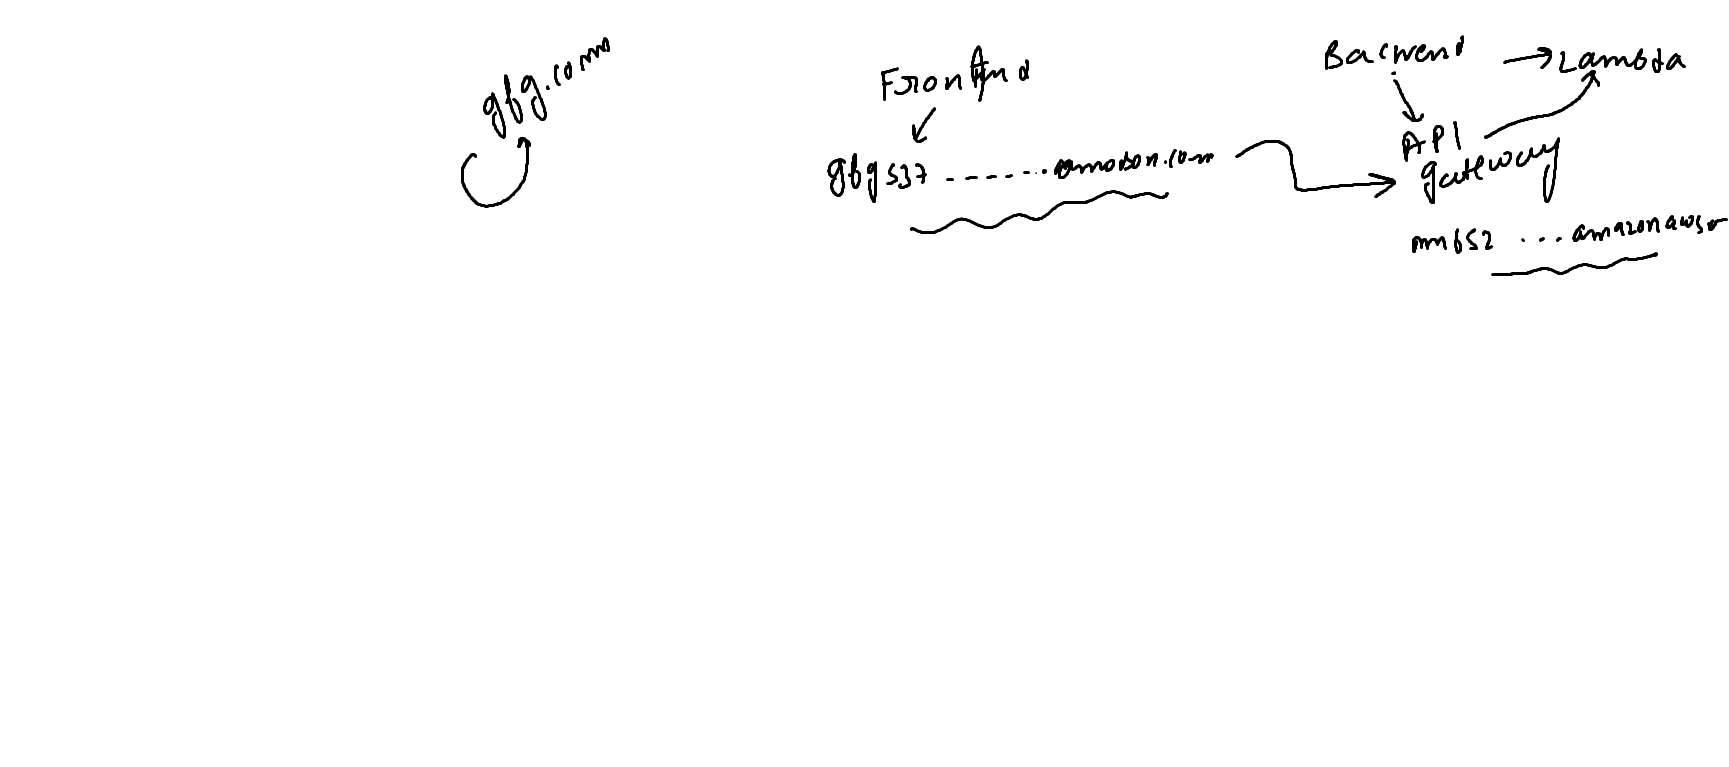 gbg.com
Frontend
gbgs37 ------... amazon.com
Backend → Lambda
API
gateway
nm652 ... amazonaws